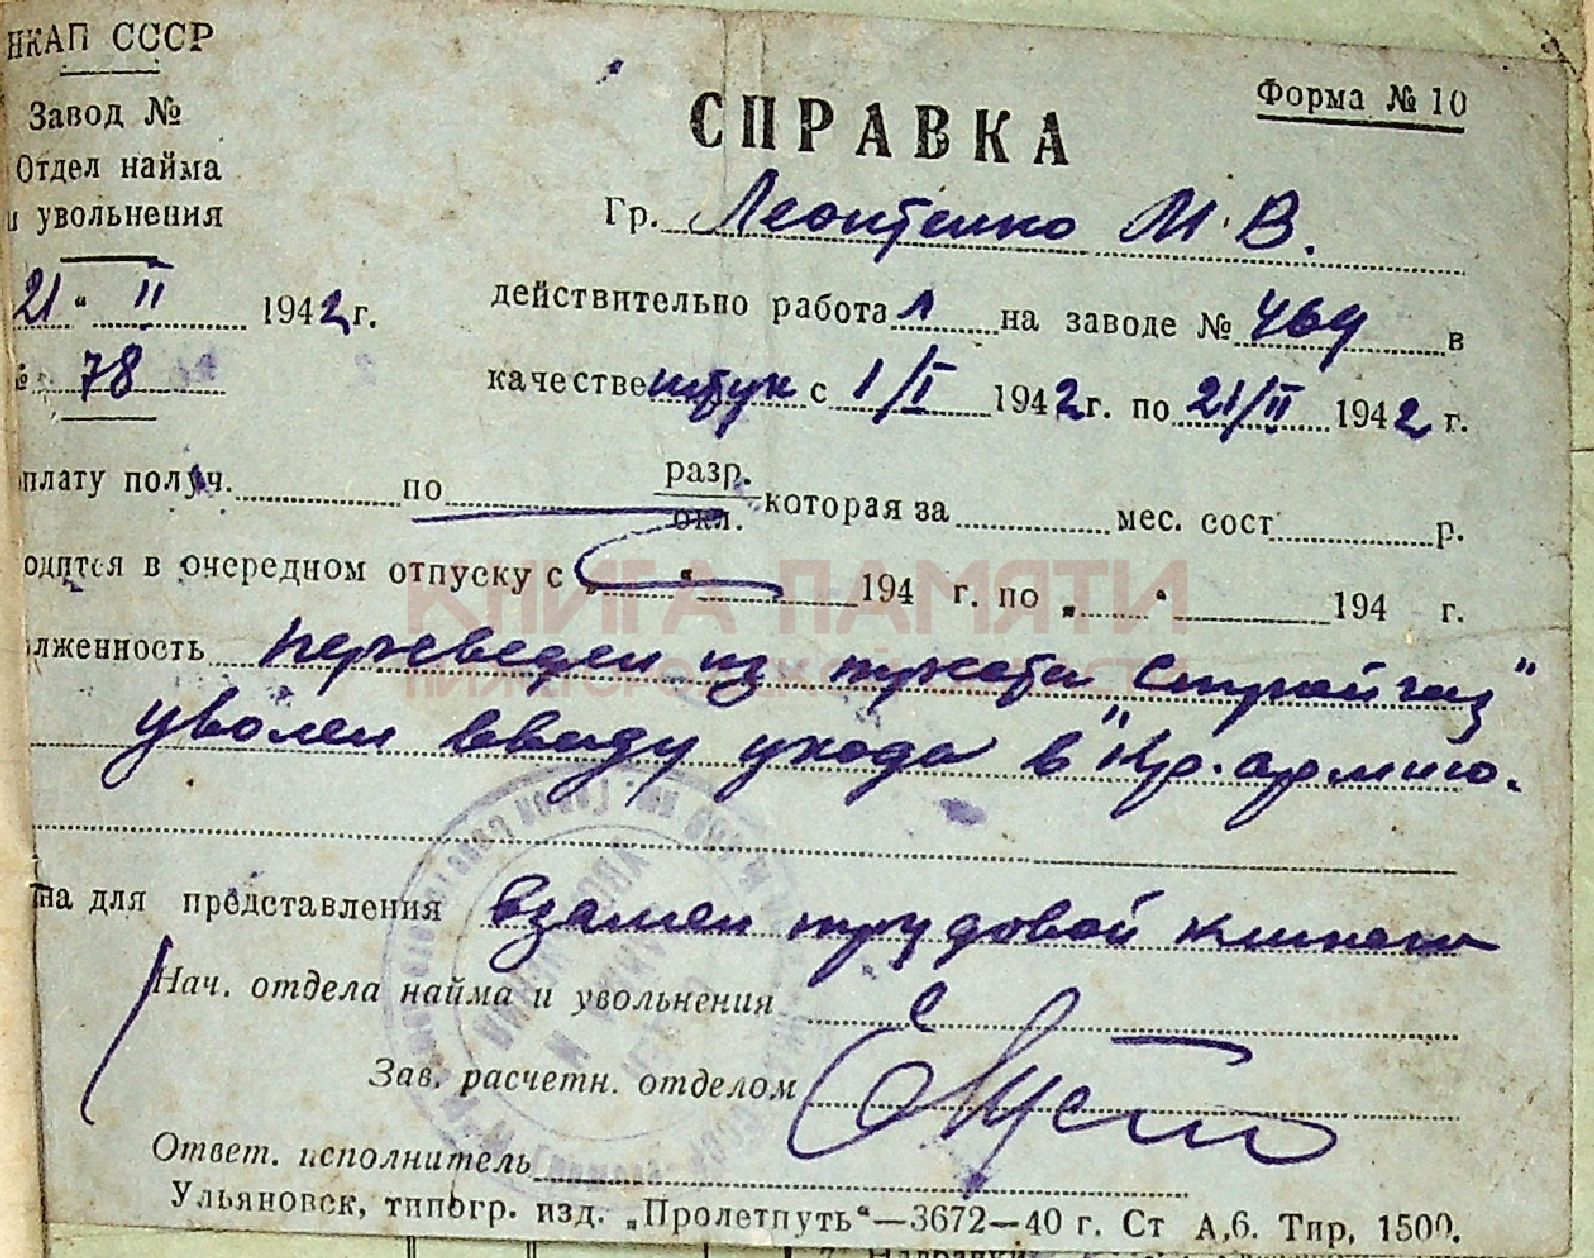 НКАП СССР
Завод №
Отдел найма
и увольнения
21 " II 1942 г.
№ 78
Форма № 10
СПРАВКА
Гр. Леонтенко М. В.
действительно работал на заводе № 469 в
качестве штук с 1/I 1942 г. по 21/II 1942 г.
плату получ. по разр. окл. которая за мес. сост р.
одится в очередном отпуску с „ “ 194 г. по „ “ 194 г.
лженность переведен из треста Стройгаз"
уволен ввиду ухода в "Кр. армию.
на для представления взамен трудовой книжки
Нач. отдела найма и увольнения
Зав. расчетн. отделом
Ответ. исполнитель
Ульяновск, типогр. изд. „Пролетпуть“—3672—40 г. Ст А,6. Тир, 1500.
КНИГА ПАМЯТИ
НИЖЕГОРОДСКОЙ ОБЛАСТИ